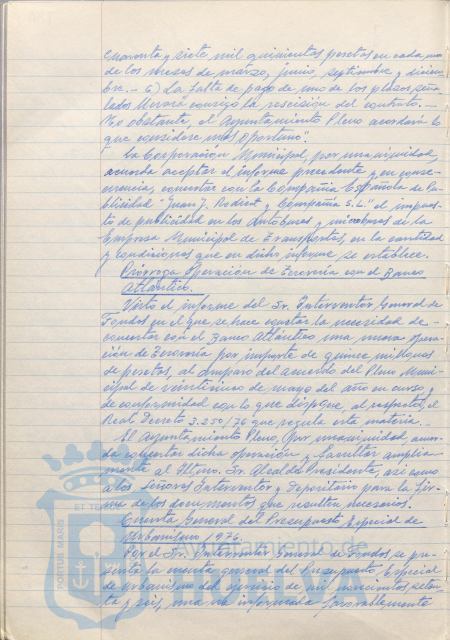 cuarenta y siete mil quinientas pesetas en cada uno
de los meses de marzo, junio, septiembre y diciem-
bre.- 6) La falta de pago de uno de los plazos seña-
lados llevará consigo la rescisión del contrato.-
No obstante, el Ayuntamiento Pleno acordará lo
que considere más oportuno".
La Corporación Municipal, por unanimidad,
acuerda aceptar el informe precedente y en conse-
cuencia, concertar con la Compañia Española de Pu-
blicidad "Juan J. Rodiet y Compañia S.L." el impues-
to de publicidad en los Autobuses y microbuses de la
Empresa Municipal de Transportes, en la cantidad
y condiciones que en dicho informe se establece.
Prórroga Operación de Tesorería con el Banco
Atlántico.
Visto el informe del Sr. Interventor General de
Fondos en el que se hace constar la necesidad de
concertar con el Banco Atlántico una nueva opera-
ción de Tesorería por importe de quince millones
de pesetas, al amparo del acuerdo del Pleno Muni-
cipal de veinticinco de mayo del año en curso y
de conformidad con lo que dispone, al respecto, el
Real Decreto 3.250/76 que regula esta materia.
El Ayuntamiento Pleno, por unanimidad, acuer-
da concertar dicha operación y facultar amplia-
mente al Iltmo. Sr. Alcalde Presidente, así como
a los Señores Interventor y Depositario para la fir-
ma de los documentos que resulten necesarios.
Cuenta General del Presupuesto Especial de
Urbanismo 1976.
Por el Sr. Interventor General de Fondos se pre-
senta la cuenta general del Presupuesto Especial
de Urbanismo del ejercicio de mil novecientos seten-
ta y seis, una vez informada favorablemente
PORTUS MARIS ET TE
Ayuntamiento de
HUELVA